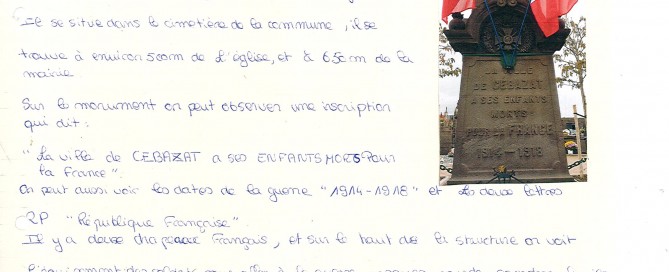 Il se situe dans le cimetière de la commune, il se
trouve à environ 500m de l'église, et à 650m de la
mairie.
Sur le monument on peut observer une inscription
qui dit :
"La ville de CEBAZAT a ses ENFANTS MORTS Pour
la France".
On peut aussi voir les dates de la guerre "1914-1918" et les deux lettres
RF "République Française"
Il y a deux drapeaux Français, et sur le haut de la structure on voit
LA VILLE
DE CEBAZAT
A SES ENFANTS
MORTS
POUR LA FRANCE
1914-1918